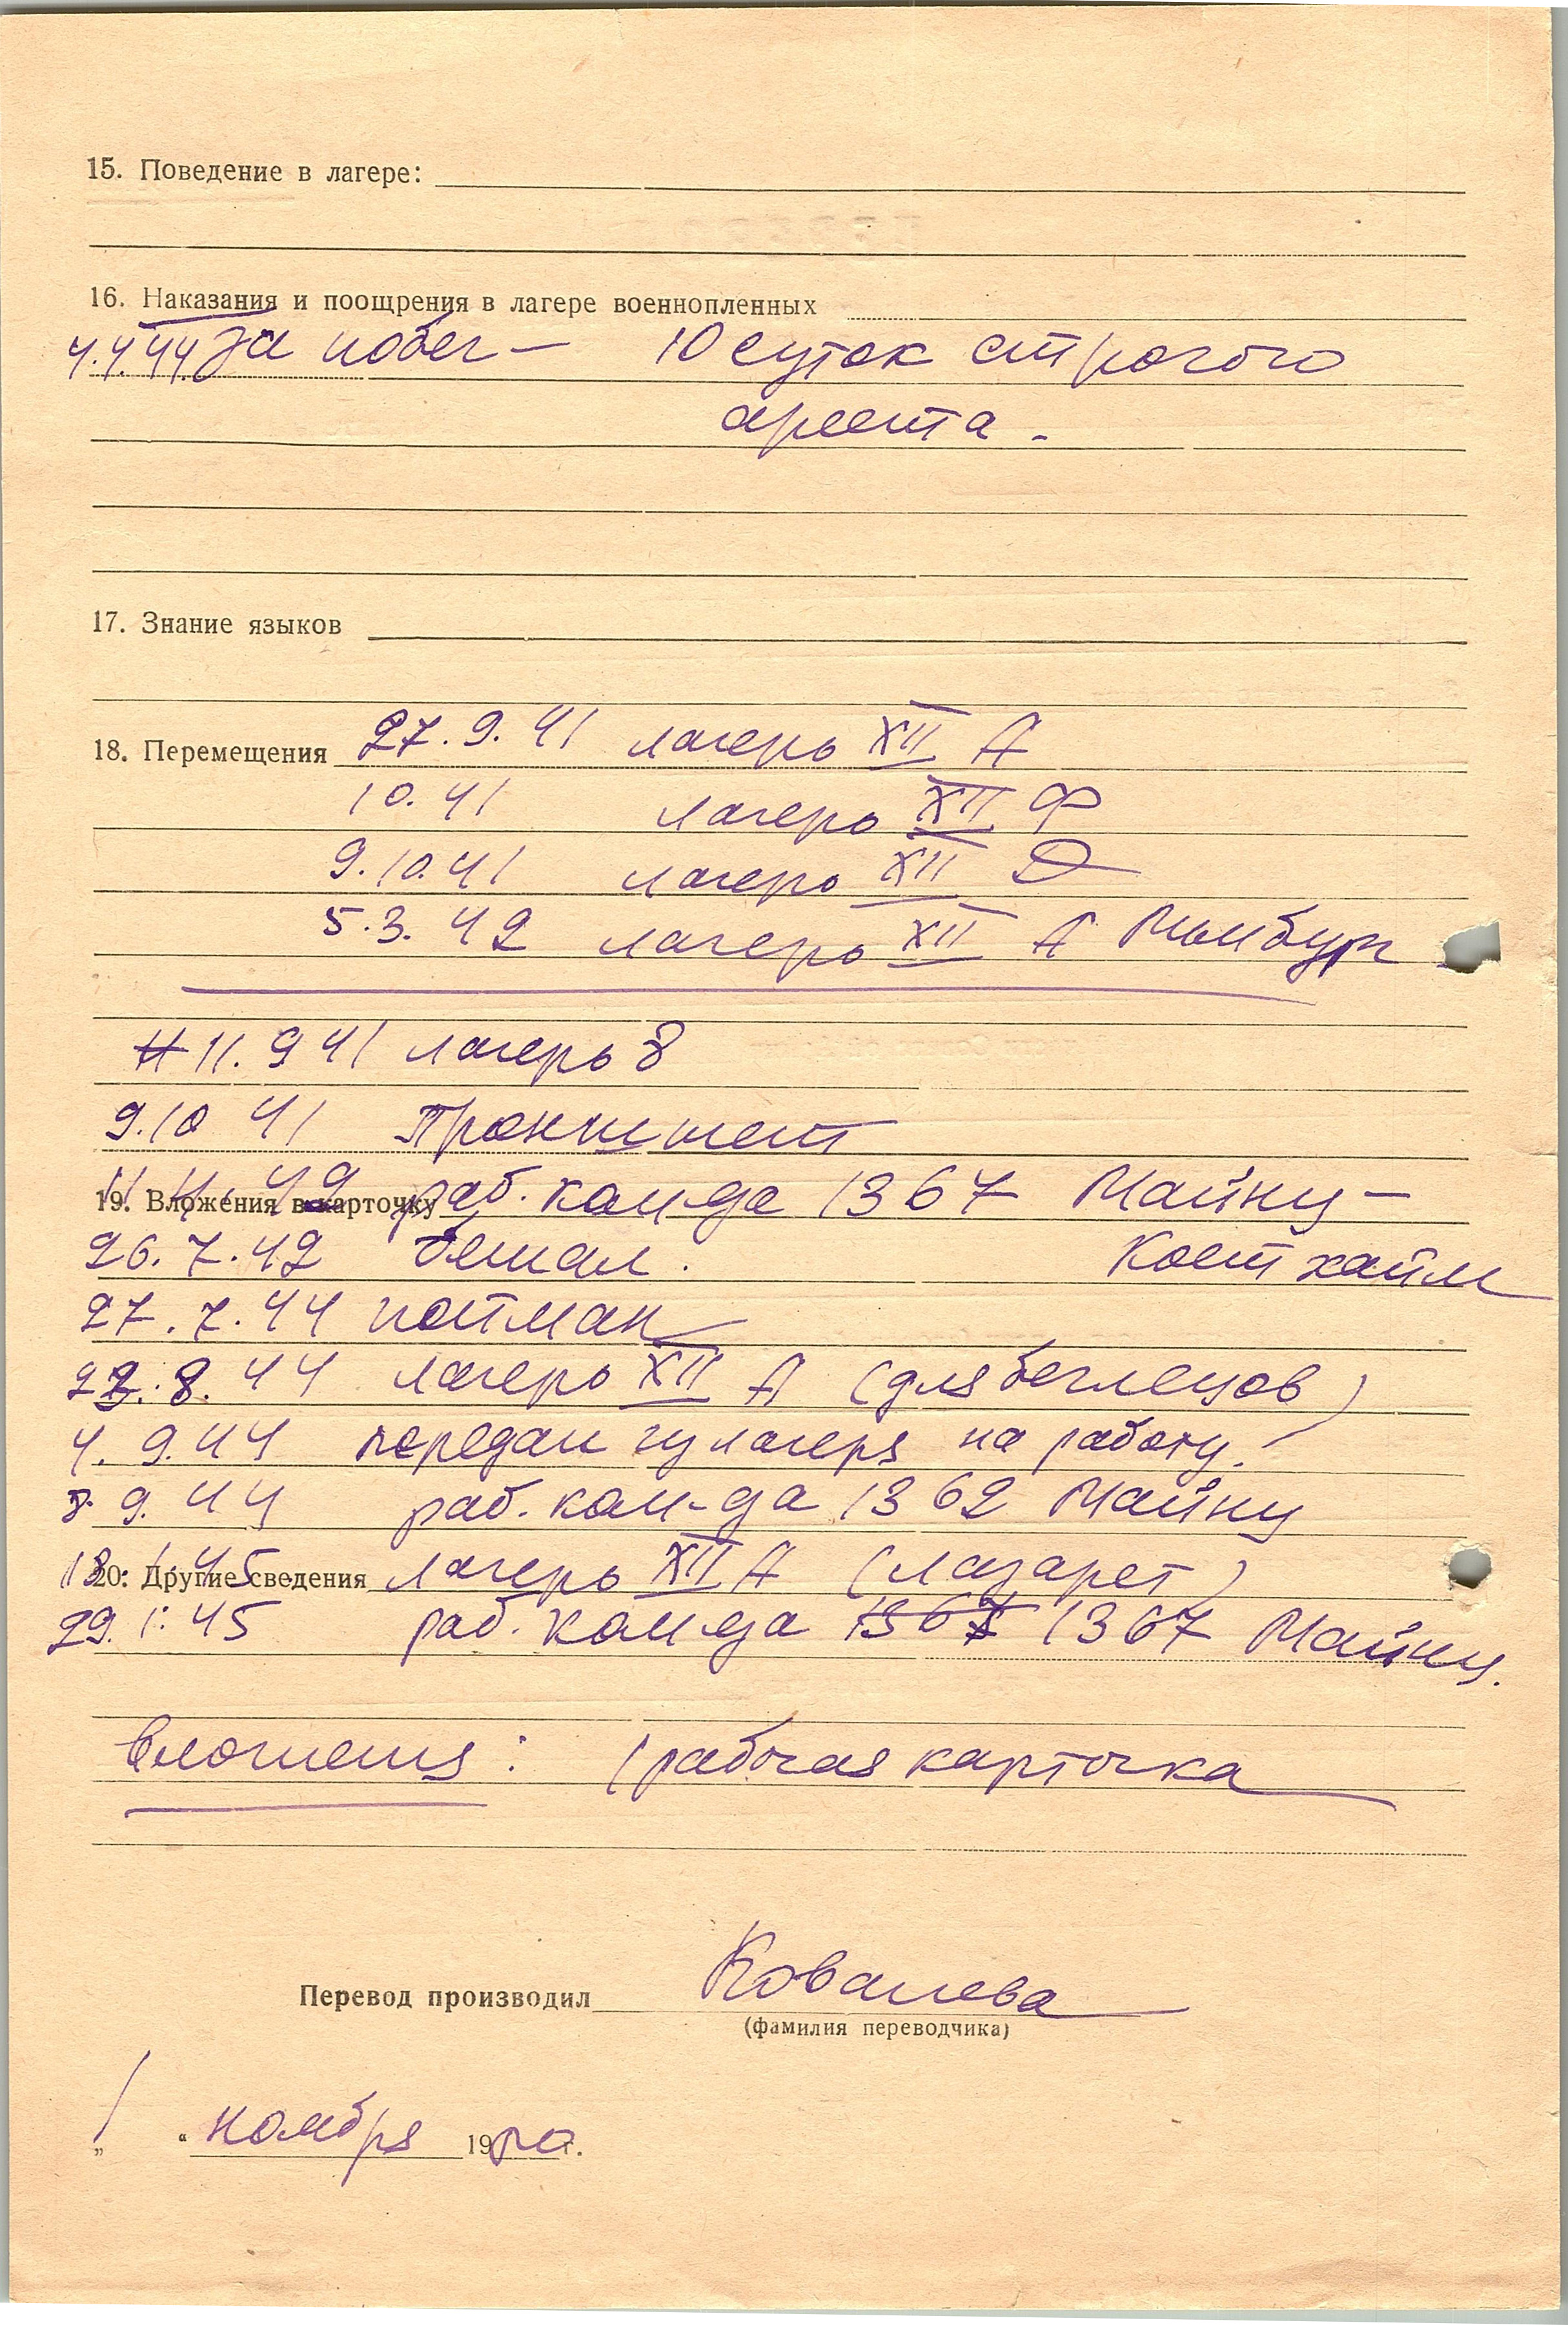 15. Поведение в лагере:
16. Наказания и поощрения в лагере военнопленных
за побег — 10 суток строгого
ареста.
17. Знание языков
18. Перемещения 27.9.41 лагерь XII А
10.41 лагерь XII Ф
9.10.41 лагерь XII Д
5.3.42 лагерь XII А Лимбург
11.9 41 лагерь 8
9.10 41
19. Вложения в карточку раб. кам-да 1367 Майнц-
26.7.42 бежал. Костхайм
27.7.44 пойман
8.44 лагерь XII А (для беглецов)
4.9.44 передан из лагеря на работу.
9.44 раб. ком-да 1362 Майнц
20. Другие сведения лагерь XII А (лазарет)
29.1.45 раб. ком-да 1367 Майнц.
Вложения: 1 рабочая карточка
Перевод производил Ковалева
(фамилия переводчика)
„1“ ноября 19 г.